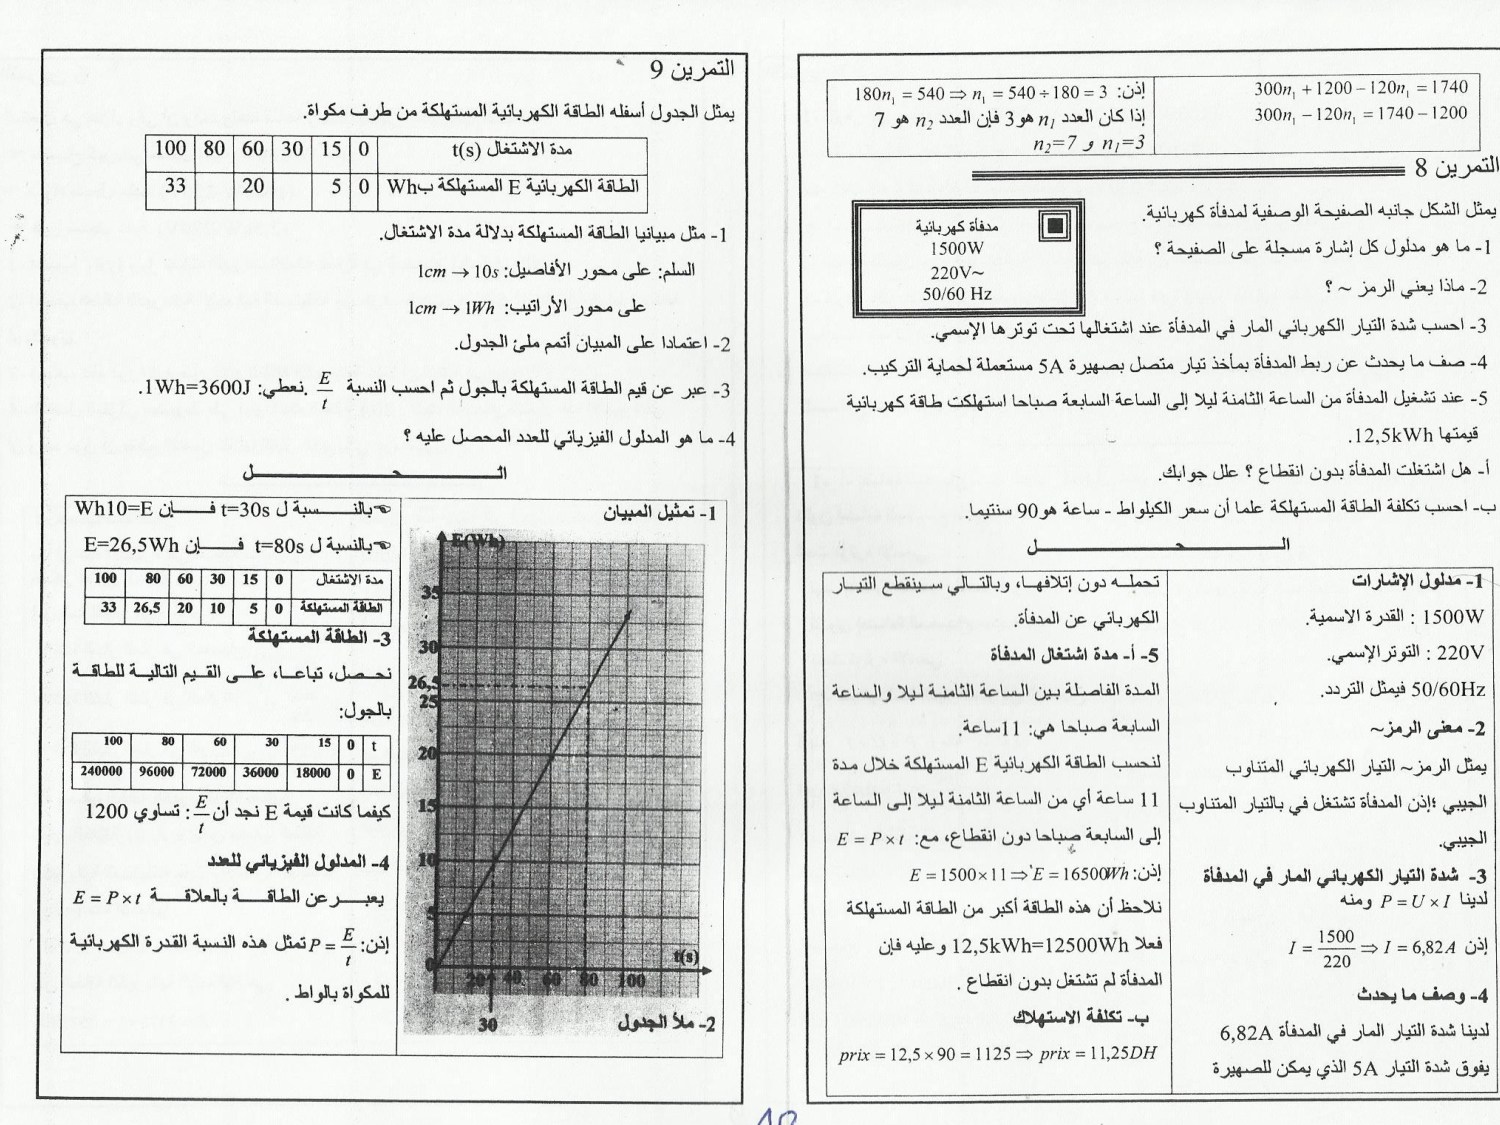 300n₁ + 1200 − 120n₁ = 1740
300n₁ − 120n₁ = 1740 − 1200
إذن: 180n₁ = 540 ⇒ n₁ = 540 ÷ 180 = 3
إذا كان العدد n₁ هو 3 فإن العدد n₂ هو 7
n₁=3 و n₂=7
التمرين 8
يمثل الشكل جانبه الصفيحة الوصفية لمدفأة كهربائية.
مدفأة كهربائية
1500W
220V~
50/60 Hz
1- ما هو مدلول كل إشارة مسجلة على الصفيحة ؟
2- ماذا يعني الرمز ~ ؟
3- احسب شدة التيار الكهربائي المار في المدفأة عند اشتغالها تحت توترها الإسمي.
4- صف ما يحدث عن ربط المدفأة بمأخذ تيار متصل بصهيرة 5A مستعملة لحماية التركيب.
5- عند تشغيل المدفأة من الساعة الثامنة ليلا إلى الساعة السابعة صباحا استهلكت طاقة كهربائية
قيمتها 12,5kWh.
أ- هل اشتغلت المدفأة بدون انقطاع ؟ علل جوابك.
ب- احسب تكلفة الطاقة المستهلكة علما أن سعر الكيلواط - ساعة هو90 سنتيما.
الـــحـــل
1- مدلول الإشارات
1500W : القدرة الاسمية.
220V : التوترالإسمي.
50/60Hz فيمثل التردد.
2- معنى الرمز~
يمثل الرمز~ التيار الكهربائي المتناوب
الجيبي ؛إذن المدفأة تشتغل في بالتيار المتناوب
الجيبي.
3- شدة التيار الكهربائي المار في المدفأة
لدينا P = U × I ومنه
إذن I = 1500/220 ⇒ I = 6,82A
4- وصف ما يحدث
لدينا شدة التيار المار في المدفأة 6,82A
يفوق شدة التيار 5A الذي يمكن للصهيرة
تحمله دون إتلافها، وبالتالي سينقطع التيار
الكهربائي عن المدفأة.
5- أ- مدة اشتغال المدفأة
المدة الفاصلة بين الساعة الثامنة ليلا والساعة
السابعة صباحا هي: 11ساعة.
لنحسب الطاقة الكهربائية E المستهلكة خلال مدة
11 ساعة أي من الساعة الثامنة ليلا إلى الساعة
إلى السابعة صباحا دون انقطاع، مع: E = P × t
إذن: E = 1500×11 ⇒ E = 16500Wh
نلاحظ أن هذه الطاقة أكبر من الطاقة المستهلكة
فعلا 12,5kWh=12500Wh وعليه فإن
المدفأة لم تشتغل بدون انقطاع .
ب- تكلفة الاستهلاك
prix = 12,5 × 90 = 1125 ⇒ prix = 11,25DH
التمرين 9
يمثل الجدول أسفله الطاقة الكهربائية المستهلكة من طرف مكواة.
مدة الاشتغال t(s) 0 15 30 60 80 100
الطاقة الكهربائية E المستهلكة بWh 0 5 20 33
1- مثل مبيانيا الطاقة المستهلكة بدلالة مدة الاشتغال.
السلم: على محور الأفاصيل: 1cm → 10s
على محور الأراتيب: 1cm → 1Wh
2- اعتمادا على المبيان أتمم ملئ الجدول.
3- عبر عن قيم الطاقة المستهلكة بالجول ثم احسب النسبة E/t .نعطي: 1Wh=3600J.
4- ما هو المدلول الفيزيائي للعدد المحصل عليه ؟
الـــحـــل
1- تمثيل المبيان
E(Wh)
35
30
26,5
25
20
15
10
5
0
20 40 60 80 100 t(s)
30
2- ملأ الجدول
☜بالنـــسبة ل t=30s فـــإن Wh10=E
☜بالنسبة ل t=80s فـــإن E=26,5Wh
مدة الاشتغال 0 15 30 60 80 100
الطاقة المستهلكة 0 5 10 20 26,5 33
3- الطاقة المستهلكة
نحصل، تباعا، على القيم التالية للطاقة
بالجول:
t 0 15 30 60 80 100
E 0 18000 36000 72000 96000 240000
كيفما كانت قيمة E نجد أن E/t : تساوي 1200
4- المدلول الفيزيائي للعدد
يعبر عن الطاقة بالعلاقة E = P × t
إذن: P = E/t تمثل هذه النسبة القدرة الكهربائية
للمكواة بالواط .
10